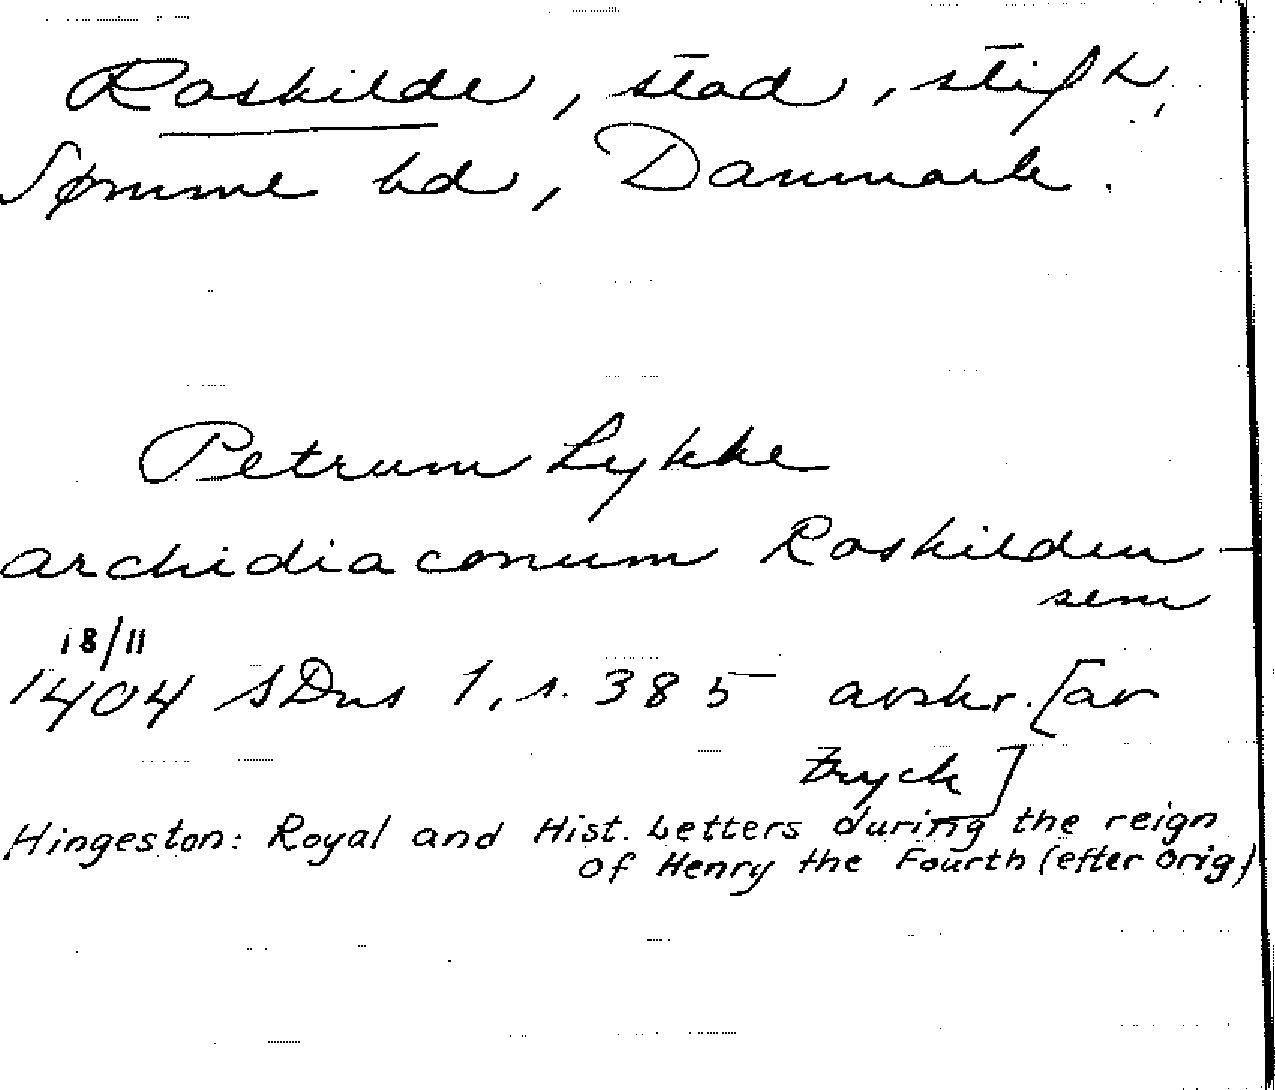 Roskilde, stad, stift,
Sømme hd, Danmark.
Petrum Lykke
archidiaconum Roskilden-
sem
18/11
1404 SDns 1, s. 385 avskr. [av
tryck]
Hingeston: Royal and Hist. Letters during the reign
of Henry the Fourth (efter orig)